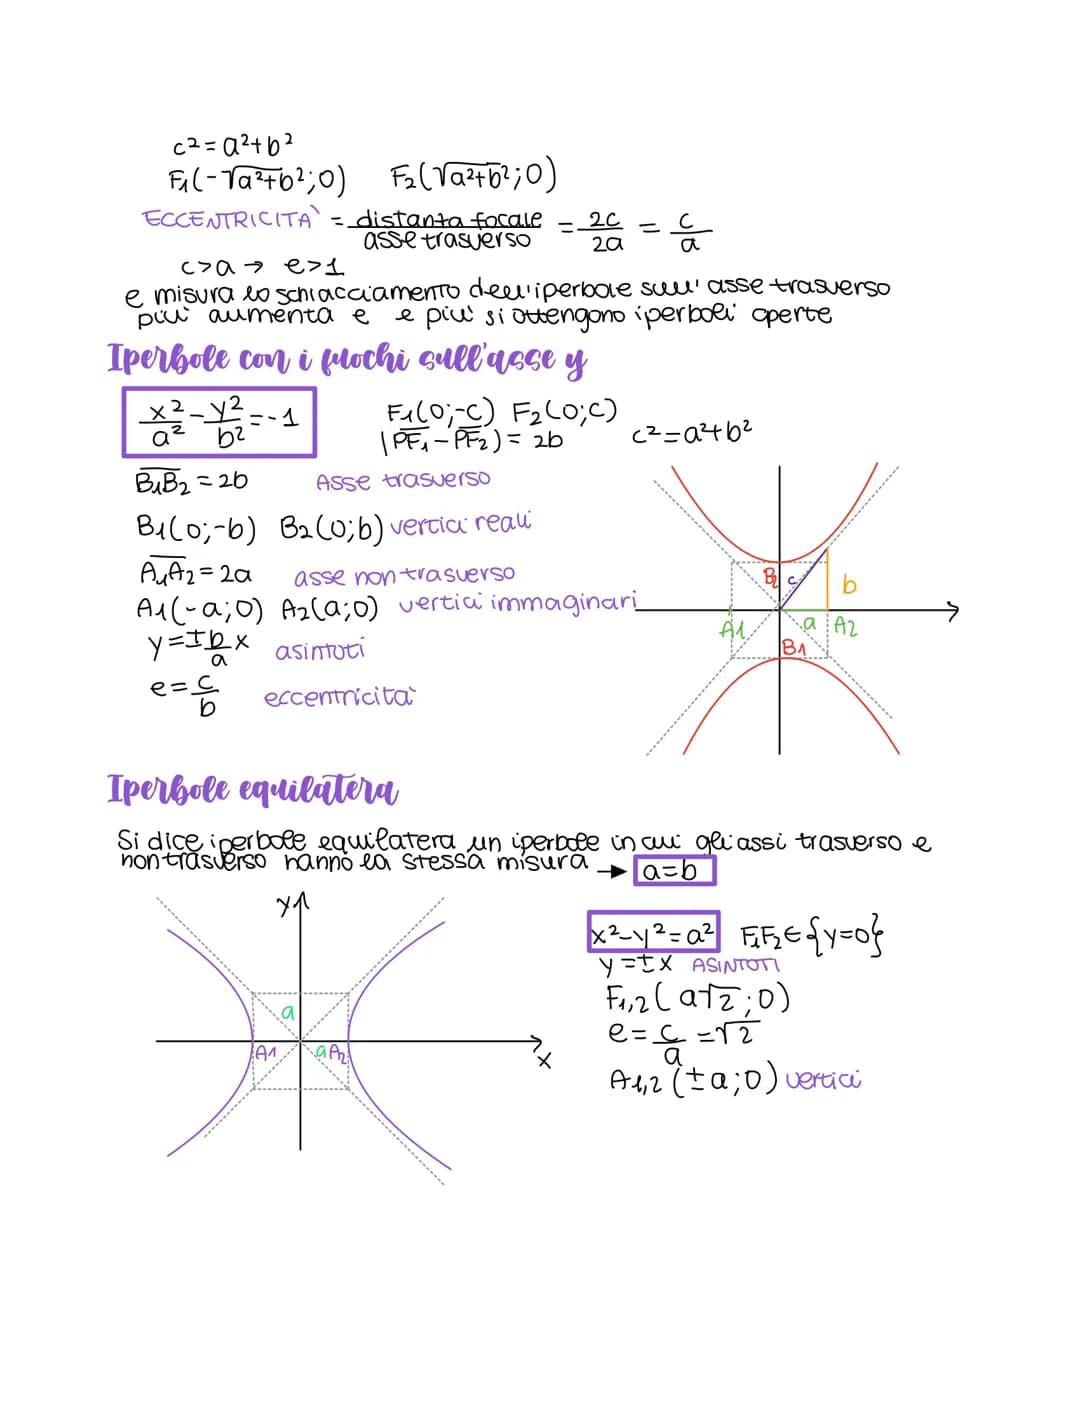 c² = a² + b²
F₁(-√a²+b²;0) F₂(√a²+b²;0)
ECCENTRICITA' = distanta focale / asse trasverso = 2c / 2a = c / a
c>a → e>1
e misura lo schiacciamento dell'iperbole sull'asse trasverso
più aumenta e e più si ottengono iperboli aperte
Iperbole con i fuochi sull'asse y
x²/a² - y²/b² = -1
F₁(0;-c) F₂(0;c)
|PF₁ - PF₂) = 2b c² = a² + b²
B₁B₂ = 2b Asse trasverso
B₁(0;-b) B₂(0;b) vertici reali
A₁A₂ = 2a asse non trasverso
A₁(-a;0) A₂(a;0) vertici immaginari
y = ± b/a x asintoti
e = c/b eccentricità
B₂ c b
A1 a A2
B₁
Iperbole equilatera
Si dice iperbole equilatera un iperbole in cui gli assi trasverso e
non trasverso hanno la stessa misura → a=b
y
a
A1 a A₂
x
x² - y² = a² F₁F₂ ∈ {y=0}
y = ± x ASINTOTI
F₁,₂ (a√2;0)
e = c/a = √2
A₁,₂ (±a;0) vertici